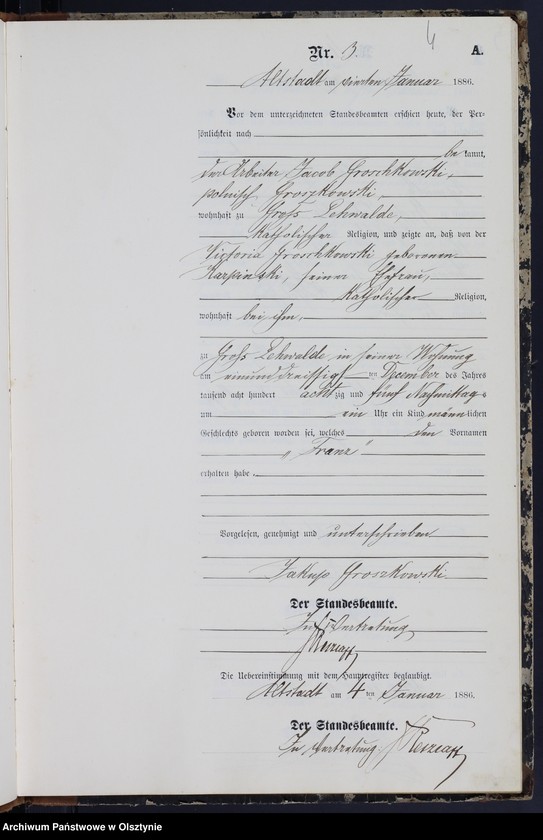 4
Nr. 3. A.
Altstadt am vierten Januar 1886.
Vor dem unterzeichneten Standesbeamten erschien heute, der Per-
sönlichkeit nach
bekannt,
der Arbeiter Jacob Groschkowski,
polnisch Groszkowski,
wohnhaft zu Groß Lehwalde,
katholischer Religion, und zeigte an, daß von der
Victoria Groschkowski geborenen
Karpinski, seiner Ehefrau,
katholischer Religion,
wohnhaft bei ihm,
zu Groß Lehwalde in seiner Wohnung
am einunddreißigsten December des Jahres
tausend acht hundert achtzig und fünf Nachmittags
um ein Uhr ein Kind männlichen
Geschlechts geboren worden sei, welches den Vornamen
"Franz"
erhalten habe.
Vorgelesen, genehmigt und unterschrieben
Jakup Groszkowski
Der Standesbeamte.
In Vertretung
Die Uebereinstimmung mit dem Hauptregister beglaubigt.
Altstadt am 4ten Januar 1886.
Der Standesbeamte.
In Vertretung
Archiwum Państwowe w Olsztynie